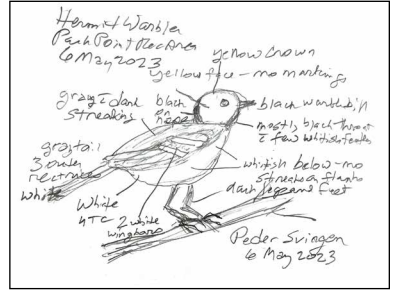 Hermit Warbler
Park Point Rec Area
6 May 2023
yellow crown
yellow face - no markings
gray c̄ dark
streaking
black
on
nape
black warbler bill
mostly black throat
c̄ few whitish feathers
gray tail
3 outer
rectrices
white
whitish below - no
streaks on flanks
dark legs and feet
White
UTC
2 white
wingbars
Peder Svingen
6 May 2023